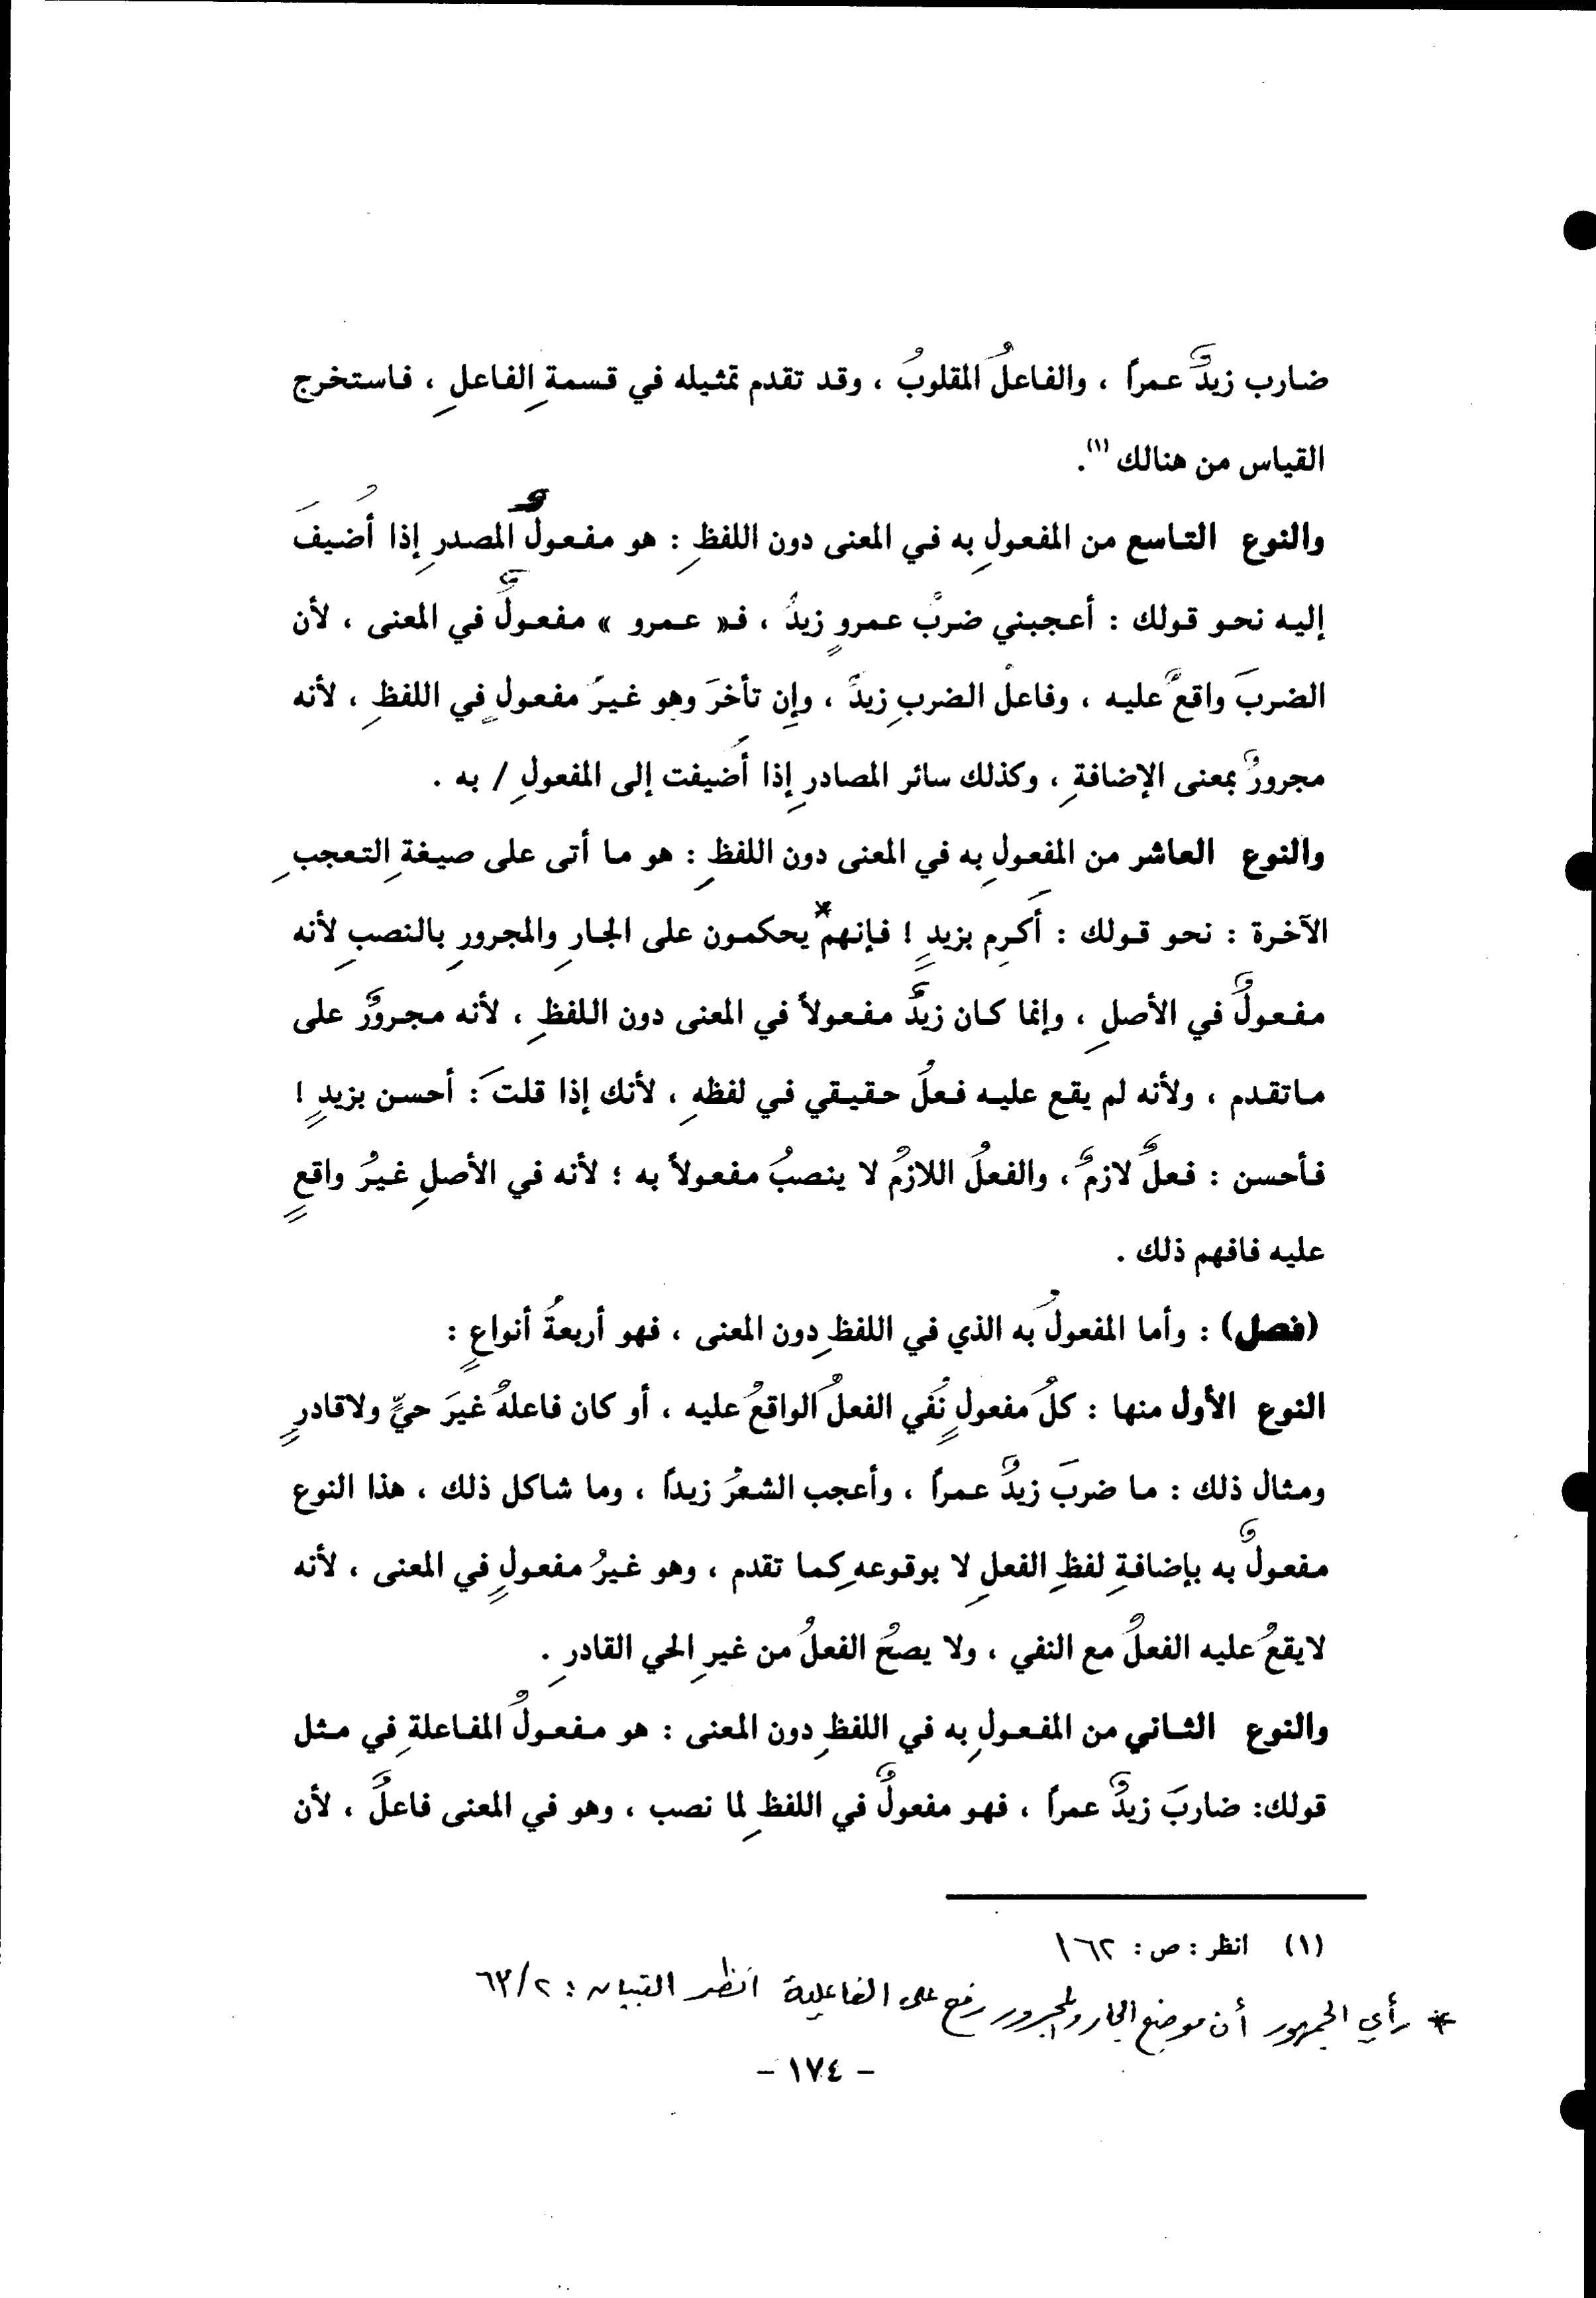 ضارب زيدٌ عمراً ، والفاعلُ المقلوبُ ، وقد تقدم تمثيله في قسمةِ الفاعلِ ، فاستخرج
القياس من هنالك (١).
والنوع التاسع من المفعولِ به في المعنى دون اللفظِ : هو مفعولُ المصدرِ إذا أُضيفَ
إليه نحو قولك : أعجبني ضربُ عمروٍ زيدٌ ، فـ« عمرو » مفعولٌ في المعنى ، لأن
الضربَ واقعٌ عليه ، وفاعلُ الضربِ زيدٌ ، وإن تأخرَ وهو غيرُ مفعولٍ في اللفظِ ، لأنه
مجرورٌ بمعنى الإضافةِ ، وكذلك سائر المصادرِ إذا أُضيفت إلى المفعولِ / به .
والنوع العاشر من المفعولِ به في المعنى دون اللفظِ : هو ما أتى على صيغةِ التعجبِ
الآخرة : نحو قولك : أَكرِم بزيدٍ ! فإنهم* يحكمون على الجارِ والمجرورِ بالنصبِ لأنه
مفعولٌ في الأصلِ ، وإنما كان زيدٌ مفعولاً في المعنى دون اللفظِ ، لأنه مجرورٌ على
ماتقدم ، ولأنه لم يقع عليه فعلُ حقيقي في لفظهِ ، لأنك إذا قلتَ : أحسن بزيدٍ !
فأحسن : فعلٌ لازمٌ ، والفعلُ اللازمُ لا ينصبُ مفعولاً به ؛ لأنه في الأصلِ غيرُ واقعٍ
عليه فافهم ذلك .
(فصل) : وأما المفعولُ به الذي في اللفظِ دون المعنى ، فهو أربعةُ أنواعٍ :
النوع الأول منها : كلُ مفعولٍ نُفي الفعلُ الواقعُ عليه ، أو كان فاعلهُ غيرَ حيٍّ ولاقادرٍ
ومثال ذلك : ما ضربَ زيدٌ عمراً ، وأعجب الشعرُ زيداً ، وما شاكل ذلك ، هذا النوع
مفعولٌ به بإضافةِ لفظِ الفعلِ لا بوقوعهِ كما تقدم ، وهو غيرُ مفعولٍ في المعنى ، لأنه
لايقعُ عليه الفعلُ مع النفي ، ولا يصحُ الفعلُ من غيرِ الحي القادرِ .
والنوع الثاني من المفعولِ به في اللفظِ دون المعنى : هو مفعولُ المفاعلةِ في مثل
قولك: ضاربَ زيدٌ عمراً ، فهو مفعولٌ في اللفظِ لما نصب ، وهو في المعنى فاعلٌ ، لأن
(١) انظر : ص : ١٦٢
* رأي الجمهور أن موضع الجار والمجرور رفع على الفاعلية انظر التبيان : ٦٣/٢
- ١٧٤ -